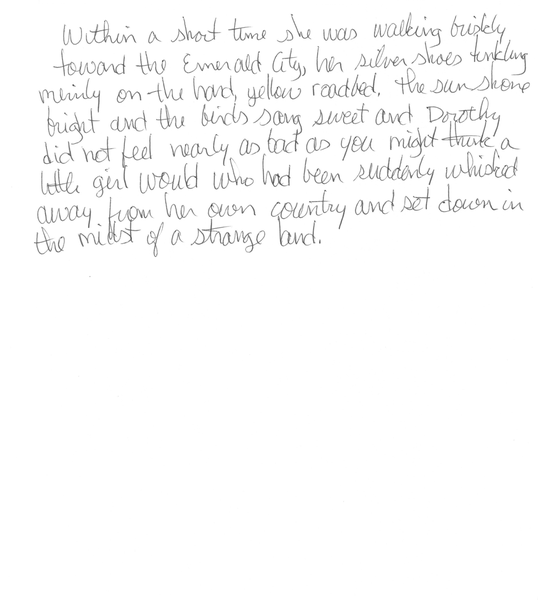 Within a short time she was walking briskly
toward the Emerald City, her silver shoes tinkling
merrily on the hard, yellow roadbed. The sun shone
bright and the birds sang sweet and Dorothy
did not feel nearly as bad as you might think a
little girl would who had been suddenly whisked
away from her own country and set down in
the midst of a strange land.